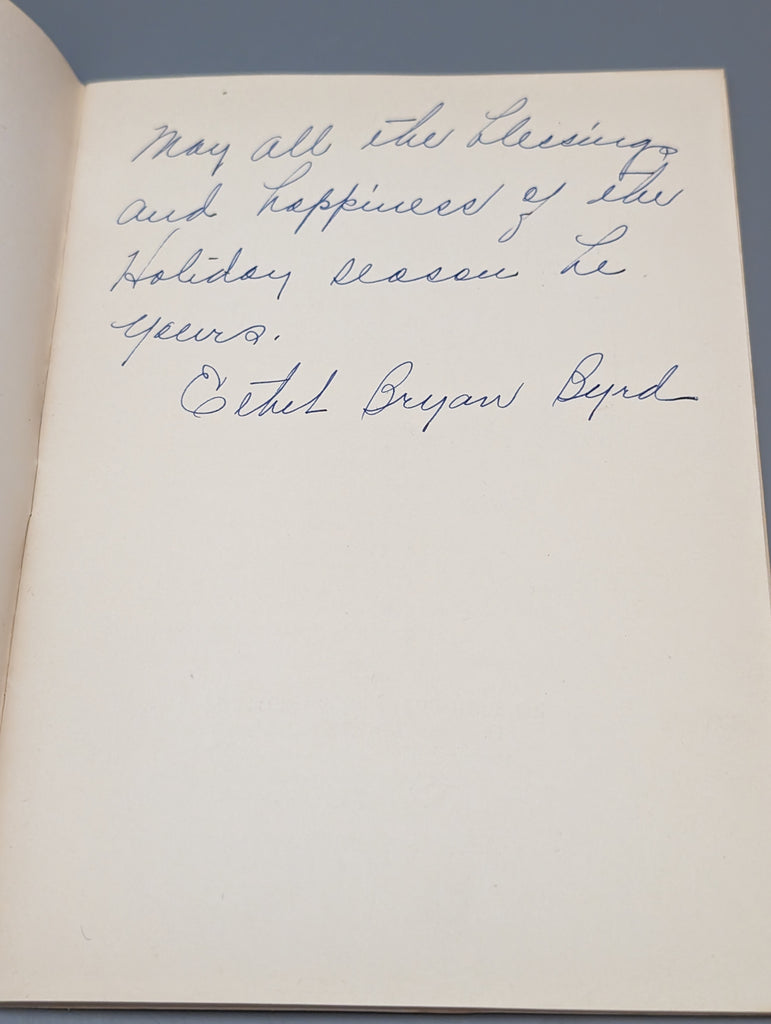 May all the blessings
and happiness of the
Holiday season be
yours.
Ethel Bryan Byrd